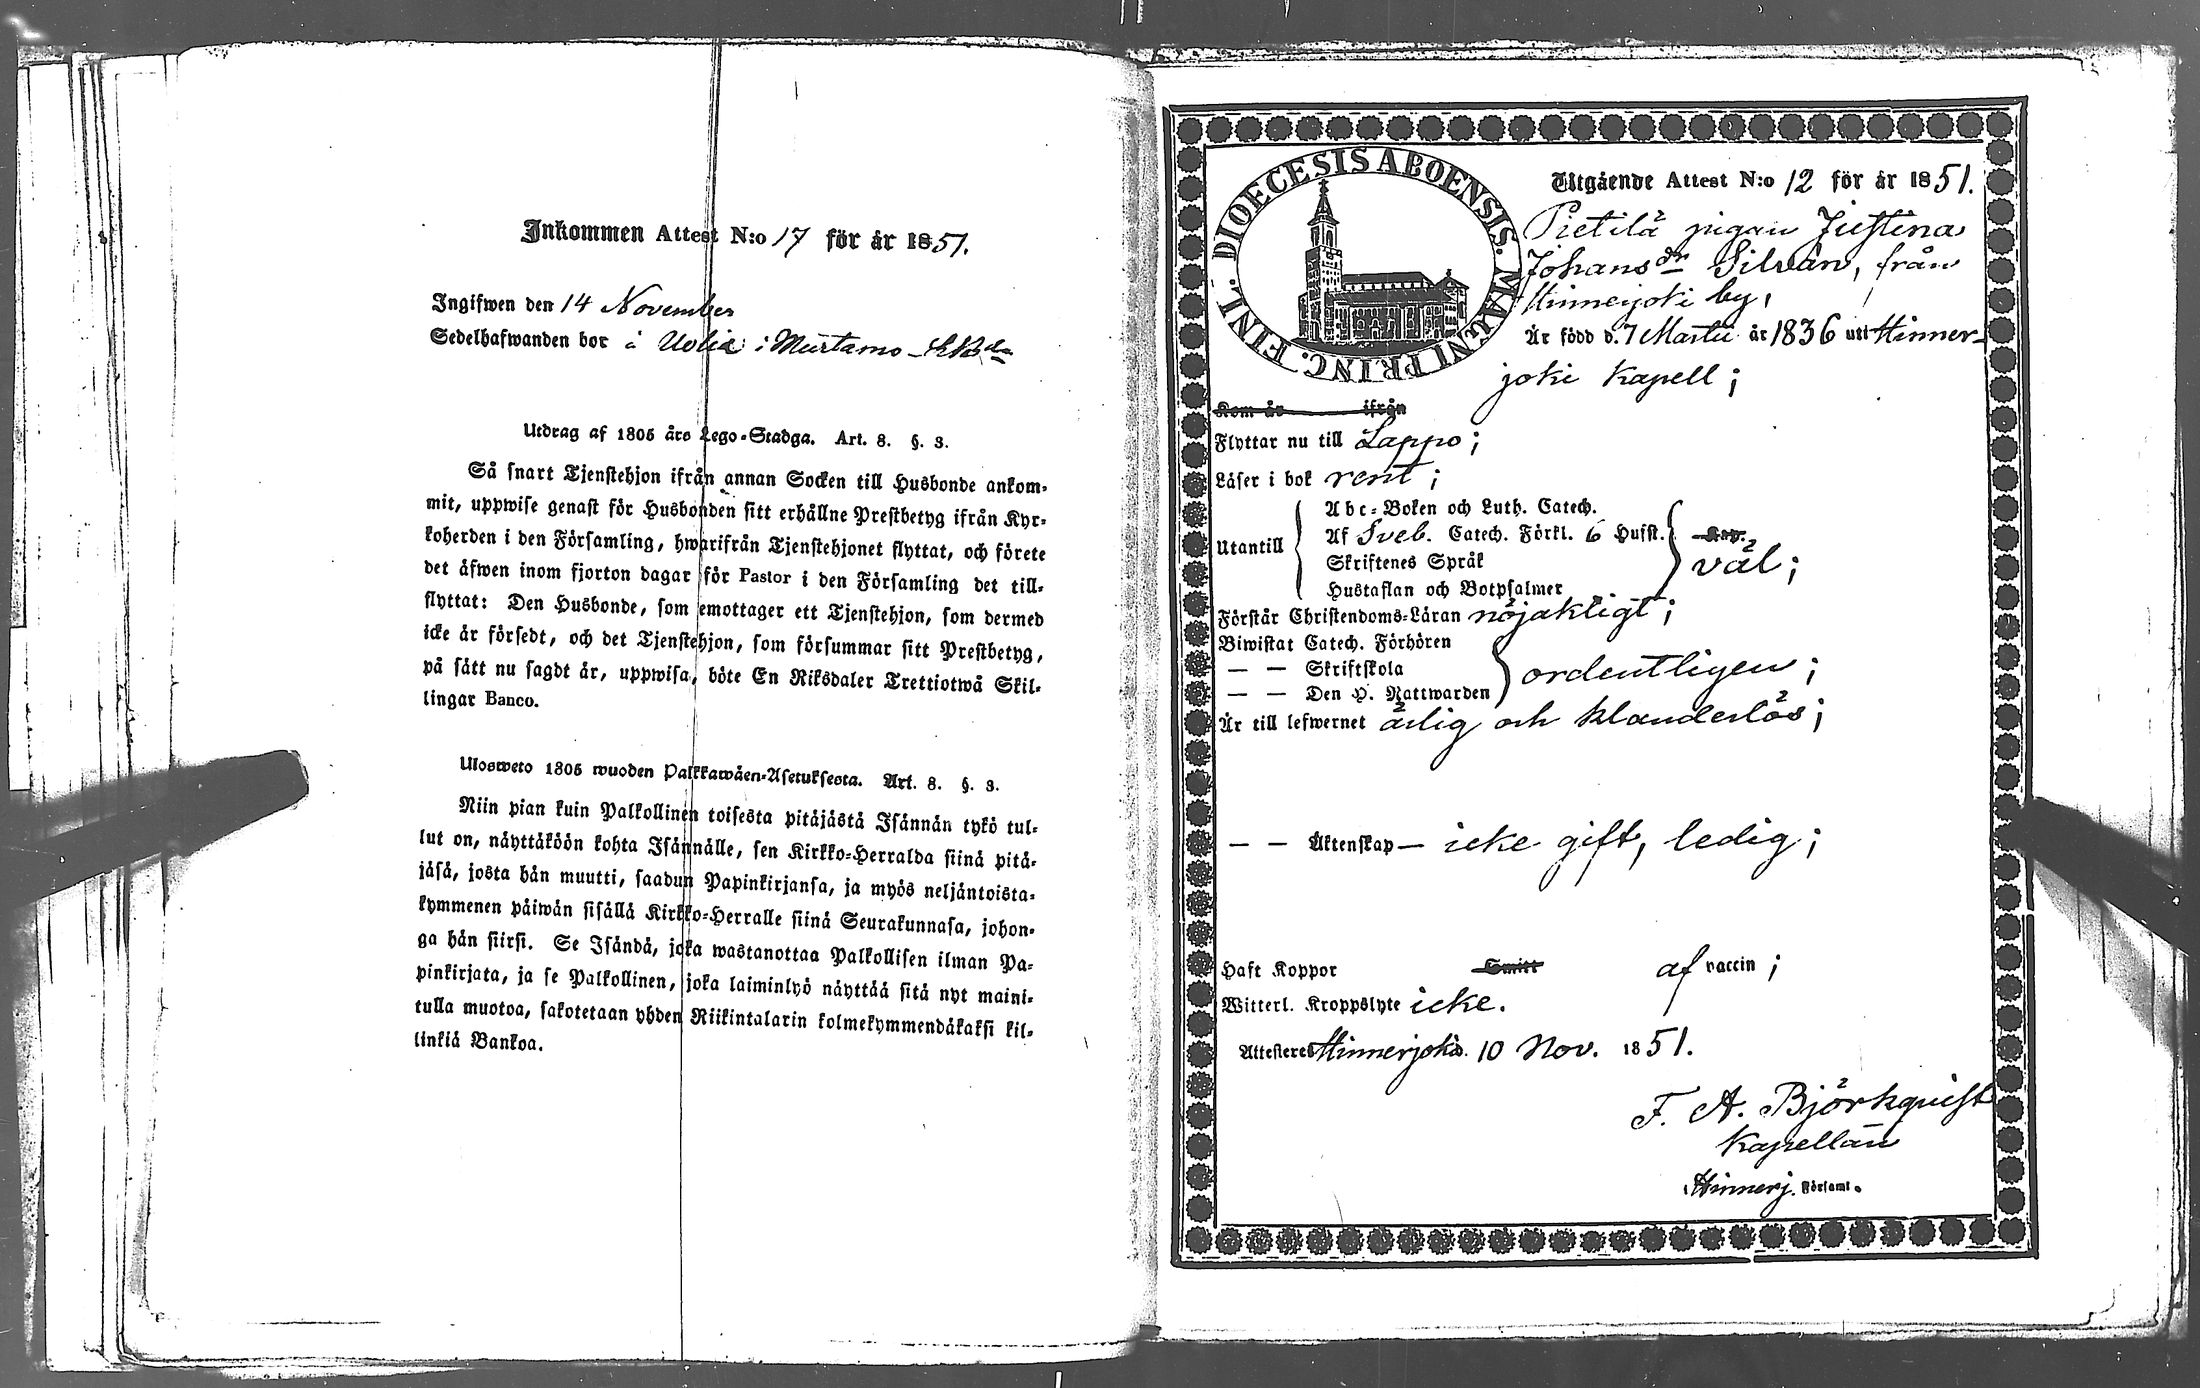 Inkommen Attest N:o 17 för år 1851.
Ingifwen den 14 November
Sedelhafwanden bor å Uolia i Murtamo
Utdrag af 1805 års Lego-Stadga. Art. 8. §. 3.
Så snart Tjenstehjon ifrån annan Socken till Husbonde ankom-
mit, uppwise genast för Husbonden sitt erhållne Prestbetyg ifrån Kyr-
koherden i den Församling, hwarifrån Tjenstehjonet flyttat, och förete
det äfwen inom fjorton dagar för Pastor i den Församling det till-
flyttat: Den Husbonde, som emottager ett Tjenstehjon, som dermed
icke är försedt, och det Tjenstehjon, som försummar sitt Prestbetyg,
på sätt nu sagdt är, uppwisa, böte En Riksdaler Trettiotwå Skil-
lingar Banco.
Uloswéto 1805 wuoden Palkkawäen-Asetuksesta. Art. 8. §. 3.
Niin pian kuin Palkollinen toisesta pitäjästä Isännän tykö tul-
lut on, näyttäköön kohta Isännälle, sen Kirkko-Herralda siinä pitä-
jäsä, josta hän muutti, saadun Papinkirjansa, ja myös neljäntoista-
kymmenen päiwän sisällä Kirkko-Herralle siinä Seurakunnasa, johon-
ga hän siirsi. Se Isändä, joka wastanottaa Palkollisen ilman Pa-
pinkirjata, ja se Palkollinen, joka laiminlyö näyttää sitä nyt maini-
tulla muotoa, sakotetaan yhden Riikintalarin kolmekymmendäkaksi kil-
linkiä Bankoa.
DIOECESIS ABOENSIS. MAGNI PRINC. FINL.
Utgående Attest N:o 12 för år 1851.
Pietilä pigan Justina
Johansdr Silván, från
Hinnerjoki by,
Är född d. 7 Martii år 1836 uti Hinner-
joki Kapell;
Kom år ifrån
Flyttar nu till Lappo;
Läser i bok rent;
Utantill
Abc-Boken och Luth. Catech.
Af Sveb. Catech. Förkl. 6 Hufst.
Skriftenes Språk
Hustaflan och Botpsalmer
väl;
Förstår Christendoms-Läran nöjaktigt;
Biwistat Catech. Förhören
— — Skriftskola
— — Den H. Nattwarden
ordentligen;
Är till lefwernet ärlig och klanderlös;
— — Äktenskap — icke gift, ledig;
Haft Koppor Smitt af vaccin;
Witterl. Kroppslyte icke.
Attesteres Hinnerjoki d. 10 Nov. 1851.
F. A. Björkqvist
Kapellan
Hinnerj. Församl.